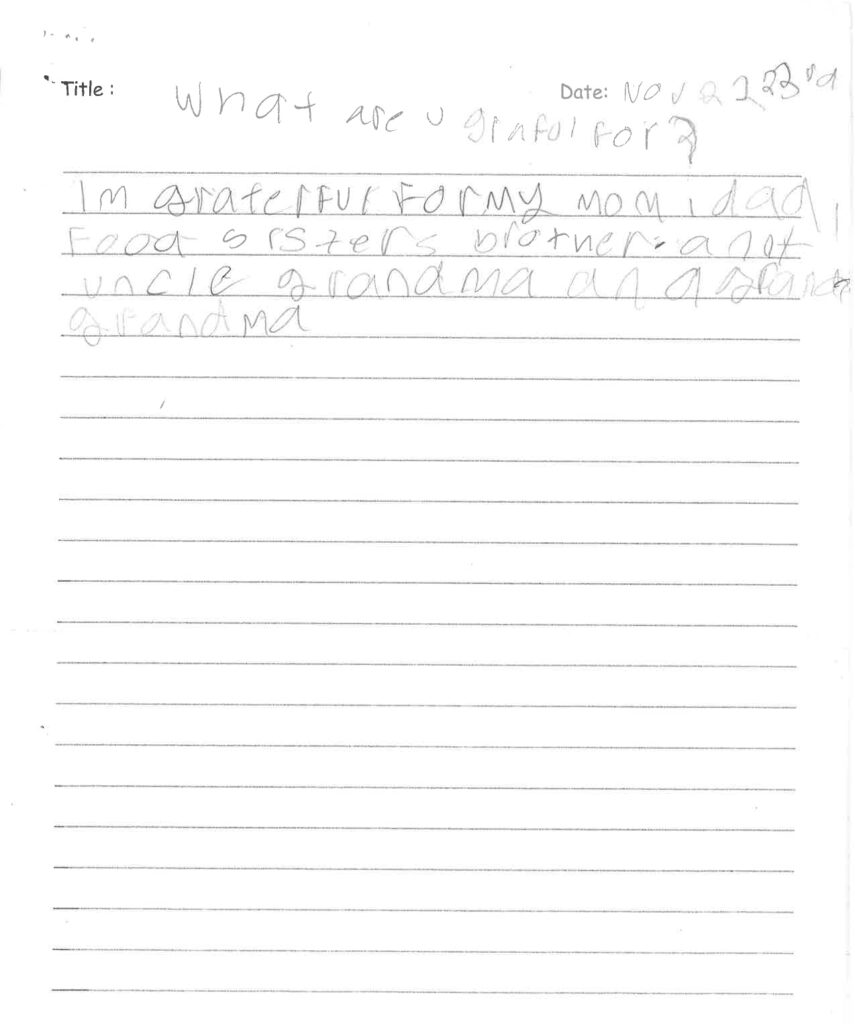 Title: What are u grnful for?
Date: Nov 2 1 23rd
Im graterful For my mom, dad,
Food sisters brother anot
uncle grandma an a grand
grandma